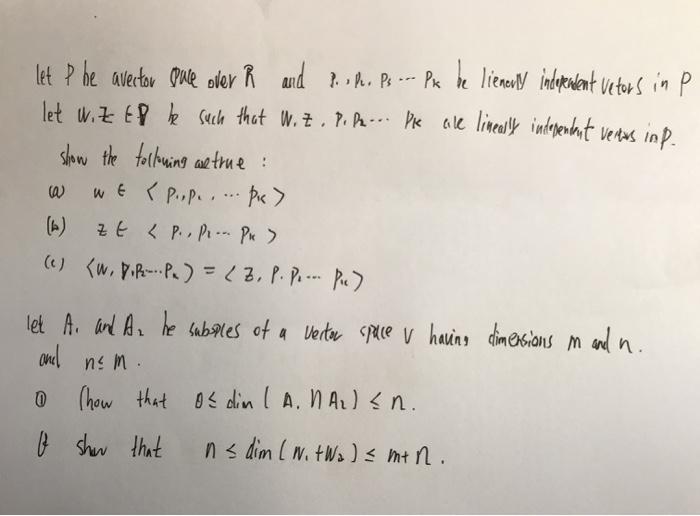 let P be avector space over R and P1, P2, P3 --- Pk be lienearly independent vetors in P
let w.z ∈ P be such that w.z. P1 P2--- Pk are linearly independent vertors in p.
show the following are true :
(a) w ∈ < P1, P2, --- Pk >
(b) z ∈ < P1, P2 --- Pk >
(c) <w, P1 P2---Pk> = <z, P1 P2 --- Pk>
let A1 and A2 be subsples of a vertor space V having dimensions m and n.
and n ≤ m .
① show that 0 ≤ dim ( A1 ∩ A2 ) ≤ n .
② show that n ≤ dim ( W1 + W2 ) ≤ m + n .